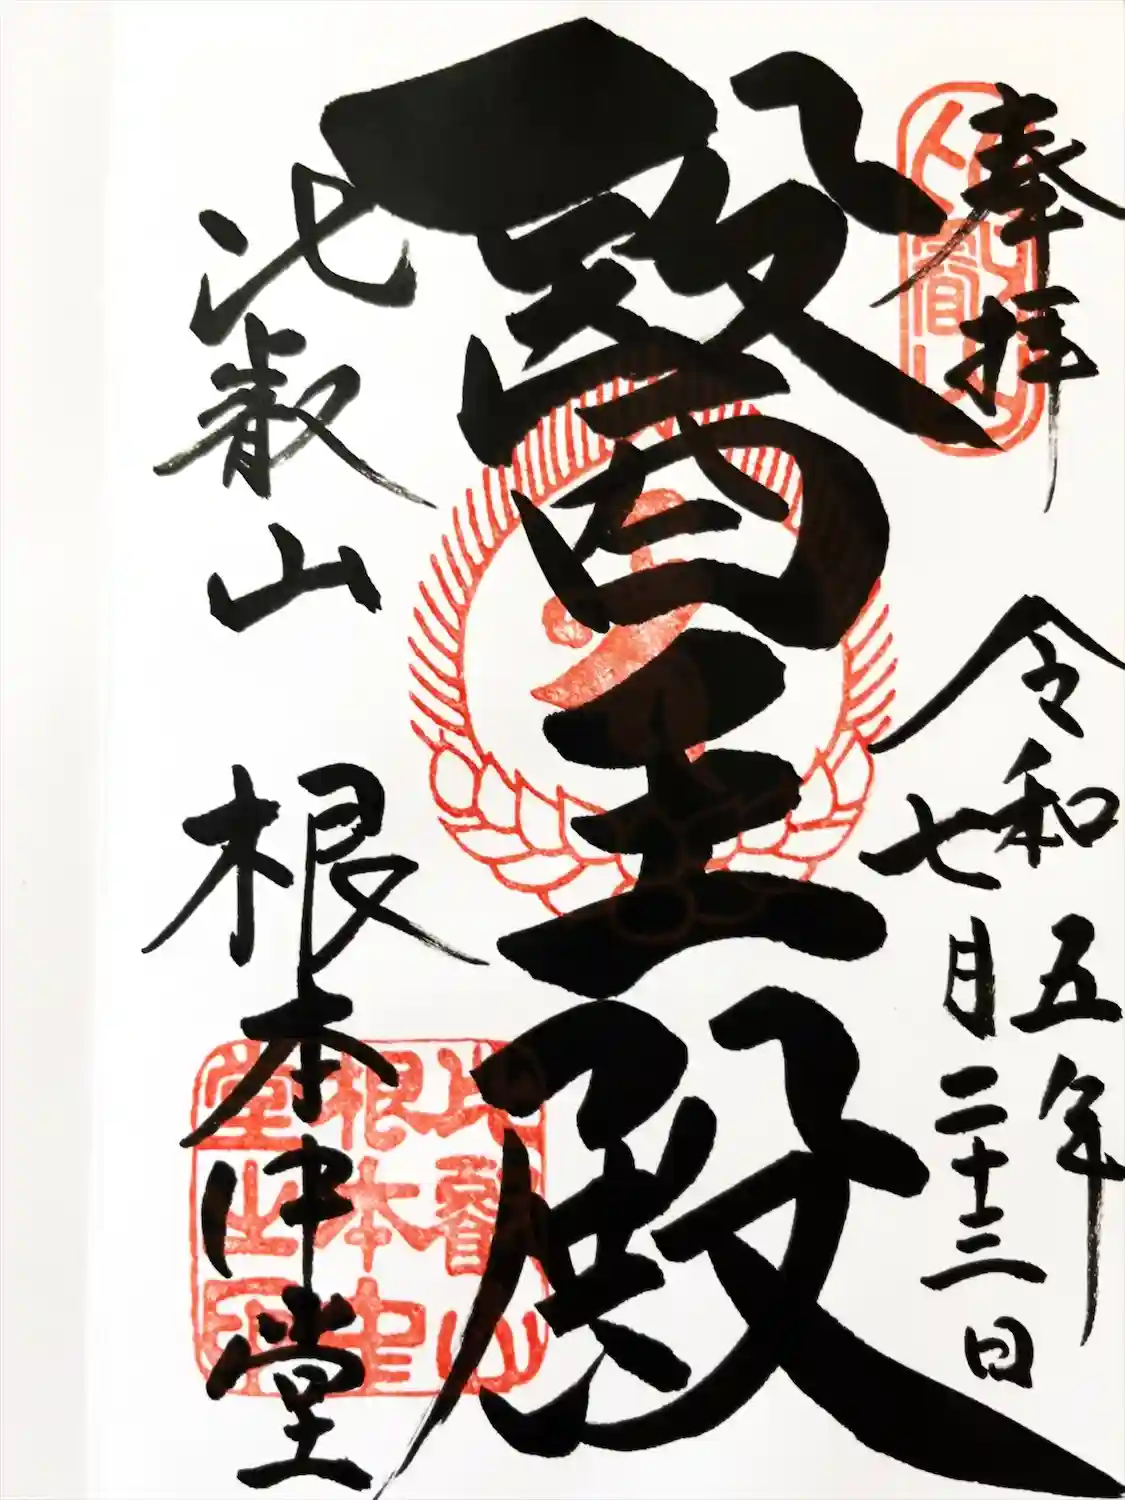 奉拝
比叡山
令和五年
七月二十三日
醫王殿
比叡山 根本中堂
比叡山
根本中
堂之印